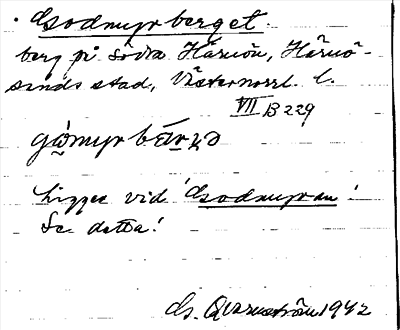 Godmyrberget.
berg på Södra Härnön, Härnö-
sands stad, Västernorrl. l.
VII B 229
Ligger vid 'Godmyran'!
Se detta!
G. Qvarnström 1942